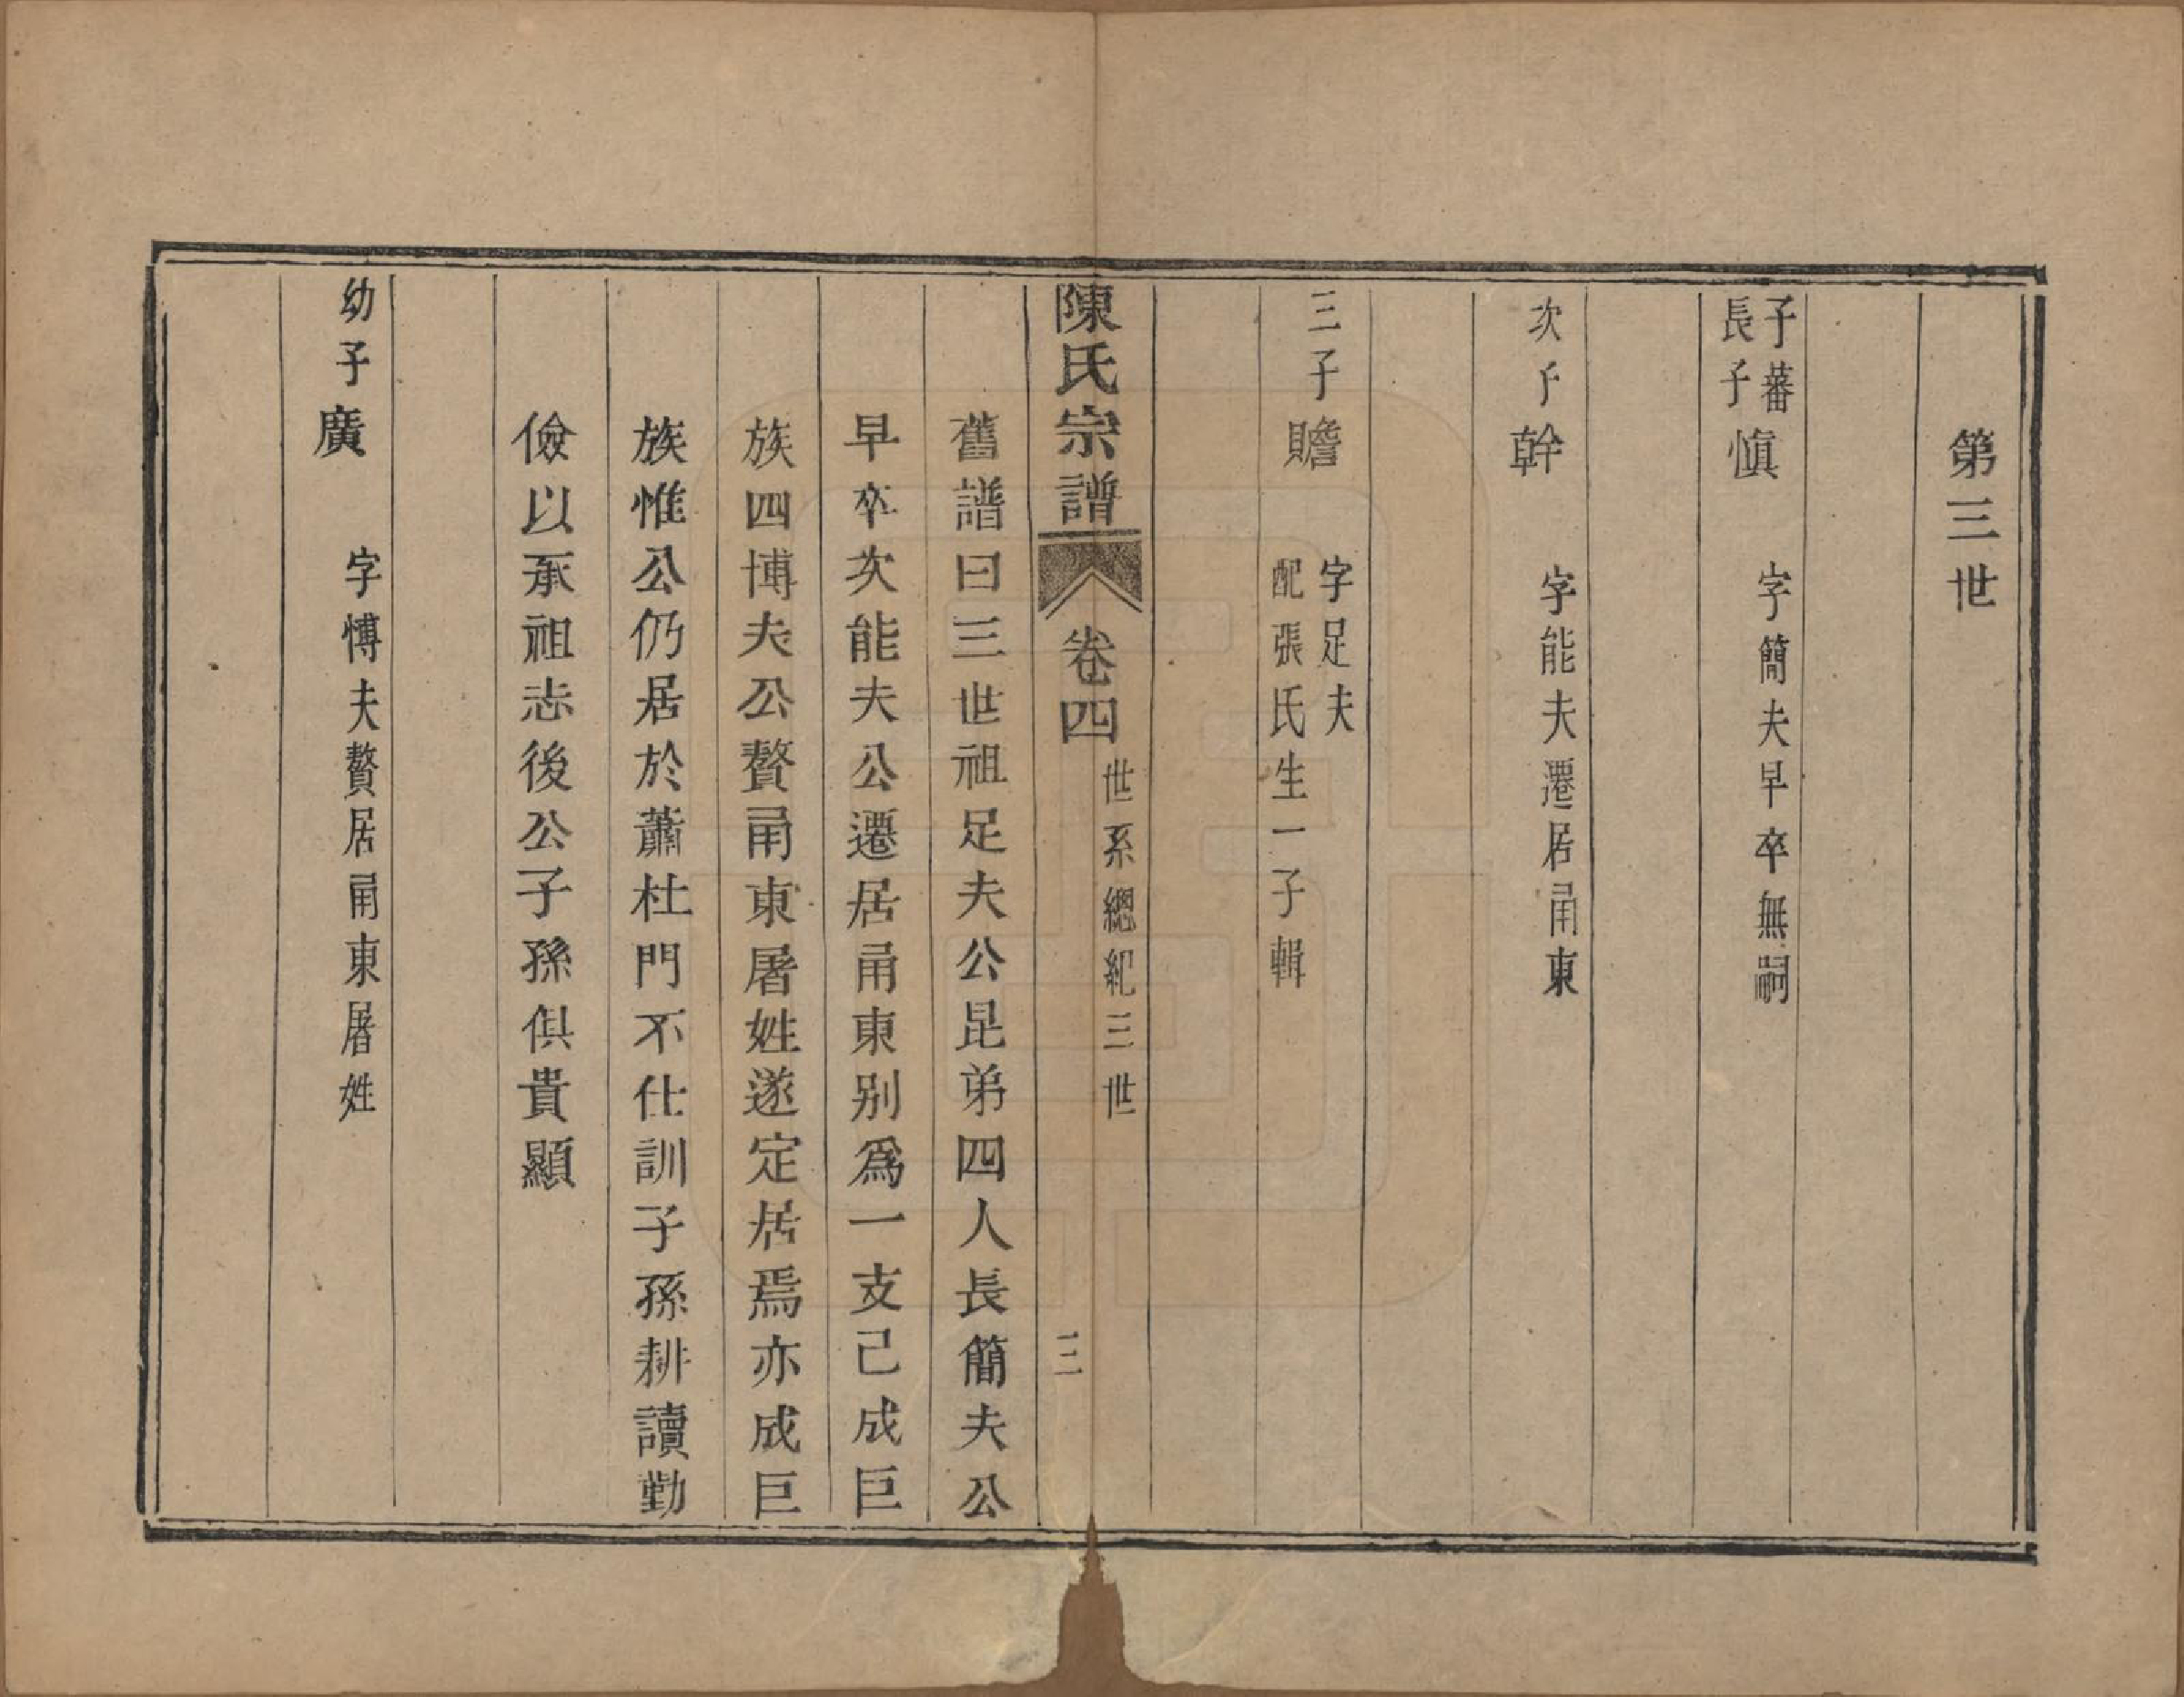 第三世
子蕃
長子
慎
字簡夫早卒無嗣
次子
幹
字能夫遷居甬東
三子
贍
字足夫
配張氏生一子輯
陳氏宗譜
卷四
世系總紀三世
二
舊譜曰三世祖足夫公昆弟四人長簡夫公
早卒次能夫公遷居甬東別爲一支己成巨
族四博夫公贅甬東屠姓遂定居焉亦成巨
族惟公仍居於蕭杜門不仕訓子孫耕讀勤
儉以承祖志後公子孫俱貴顯
幼子
廣
字博夫贅居甬東屠姓